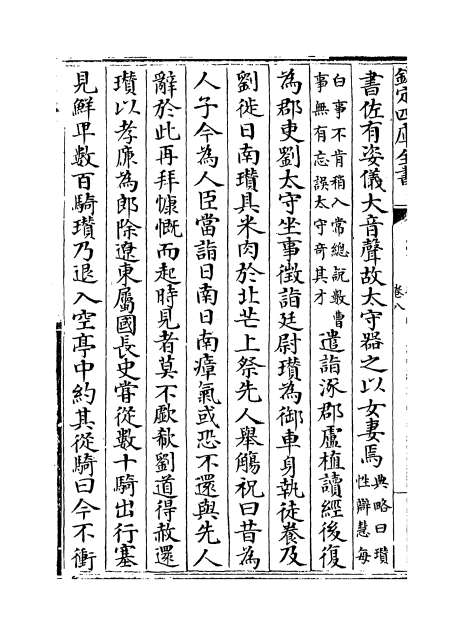 欽定四庫全書
卷八
書佐有姿儀大音聲故太守器之以女妻焉典略曰瓚性辯慧每
白事不肯稍入常總說數曹事無有忘誤太守奇其才遣詣涿郡盧植讀經後復
為郡吏劉太守坐事徵詣廷尉瓚為御車身執徒養及
劉徙日南瓚具米肉於北芒上祭先人舉觴祝曰昔為
人子今為人臣當詣日南日南瘴氣或恐不還與先人
辭於此再拜慷慨而起時見者莫不歔欷劉道得赦還
瓚以孝廉為郎除遼東屬國長史嘗從數十騎出行塞
見鮮卑數百騎瓚乃退入空亭中約其從騎曰今不衝